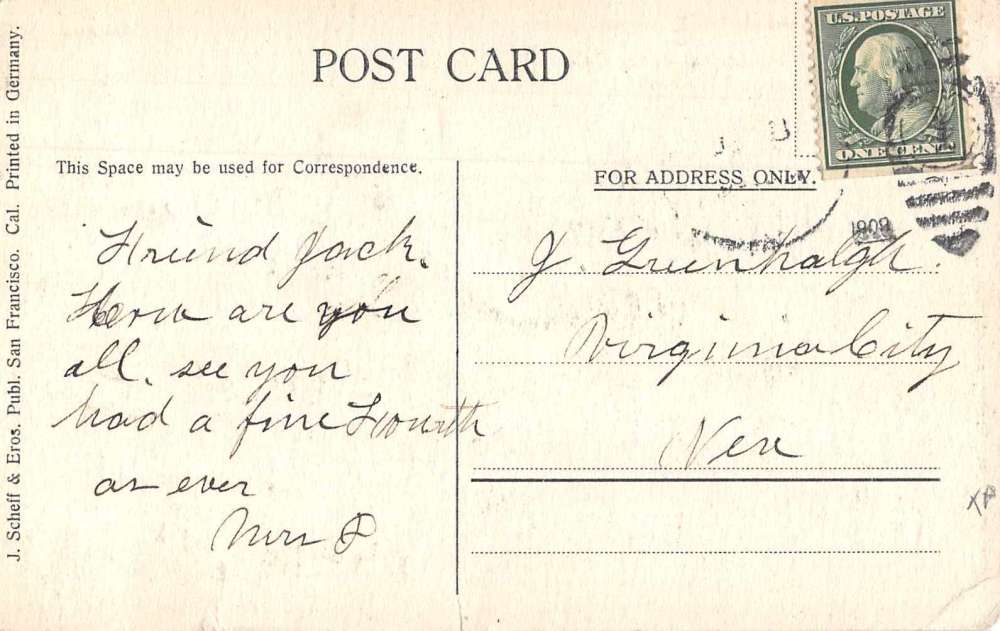 POST CARD
U.S. POSTAGE
ONE CENT
1909
This Space may be used for Correspondence.
FOR ADDRESS ONLY.
Friend Jack.
How are you
all. see you
had a fine Fourth
as ever
Mrs P
J. Greenhalgh.
Virginia City
Nev
XP
J. Scheff & Bros. Publ. San Francisco. Cal. Printed in Germany.